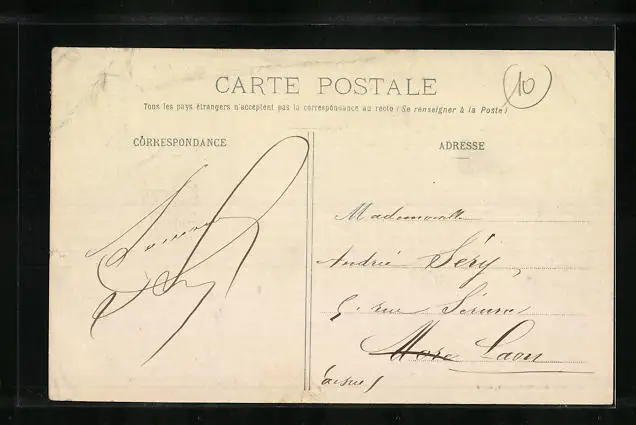 CARTE POSTALE
10
Tous les pays étrangers n'acceptent pas la correspondance au recto (Se renseigner à la Poste)
CORRESPONDANCE
ADRESSE
Mademoiselle
Andrée Séry,
5. rue
Laon
(aisne)